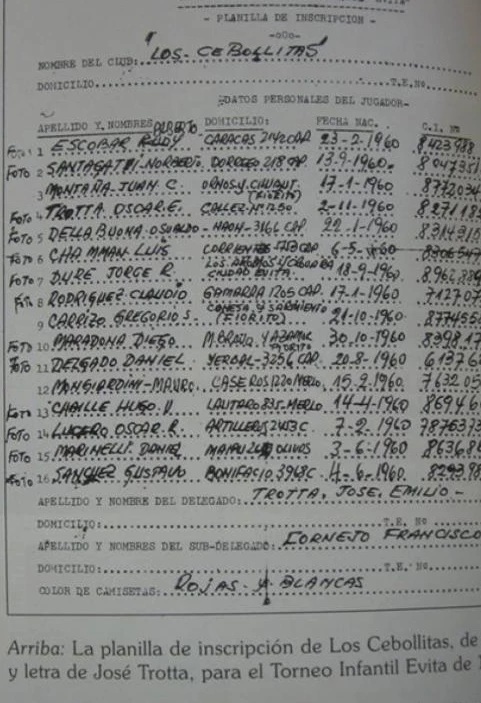 - PLANILLA DE INSCRIPCION -
-oOo-
NOMBRE DEL CLUB: "LOS-CEBOLLITAS"
DOMICILIO T.E.Nº
-DATOS PERSONALES DEL JUGADOR-
APELLIDO Y NOMBRES DOMICILIO: FECHA NAC. C.I. Nº
1 ESCOBAR RUDY ALBERTO CARACAS 2142 CAP. 23-2-1960 8423938
FOTO 2 SANTAGATI NORBERTO. DOROTEO 218 CAP. 13-9-1960. 8047351
3 MONTAÑA JUAN C. (FIORITO) 17-1-1960 8772034
FOTO 4 TROTTA OSCAR E. CALLE 2 Nº 1250 2-11-1960
FOTO 5 DELLA BUONA OSVALDO - HAON-3166 CAP. 22-1-1960 8314315
FOTO 6 CHAMMAN LUIS CORRIENTES CAP. 6-5-1960
FOTO 7 DURE JORGE R. CIUDAD EVITA 18-9-1960.
FOTO 8 RODRIGUEZ CLAUDIO GAMARRA 1205 CAP. 17-1-1960
9 CARRIZO GREGORIO S. CONESA Y SARMIENTO (FIORITO) 21-10-1960
FOTO 10 MARADONA DIEGO M. BRAVO Y AZAMOR FIORITO 30-10-1960
FOTO 11 DELGADO DANIEL YERBAL-3256 CAP. 20-8-1960
12 MONGIARDINI-MAURO CASEROS 1220 MERLO. 15-2-1960. 763205
FOTO 13 CHAILLE HUGO D. LAUTARO 835-MERLO 14-4-1960 86946
FOTO 14 LUCERO OSCAR R. ARTILLEROS 2453 C. 7-2-1960 7876373
FOTO 15 MARINELLI DANIEL OLIVOS 3-6-1960
FOTO 16 SANCHEZ GUSTAVO BONIFACIO 3968 C. 4-6-1960
APELLIDO Y NOMBRE DEL DELEGADO: TROTTA, JOSE, EMILIO -
DOMICILIO: T.E. Nº
APELLIDO Y NOMBRES DEL SUB-DELEGADO: CORNEJO FRANCISCO
DOMICILIO: T.E. Nº
COLOR DE CAMISETAS: ROJAS Y BLANCAS
Arriba: La planilla de inscripción de Los Cebollitas, de
y letra de José Trotta, para el Torneo Infantil Evita de